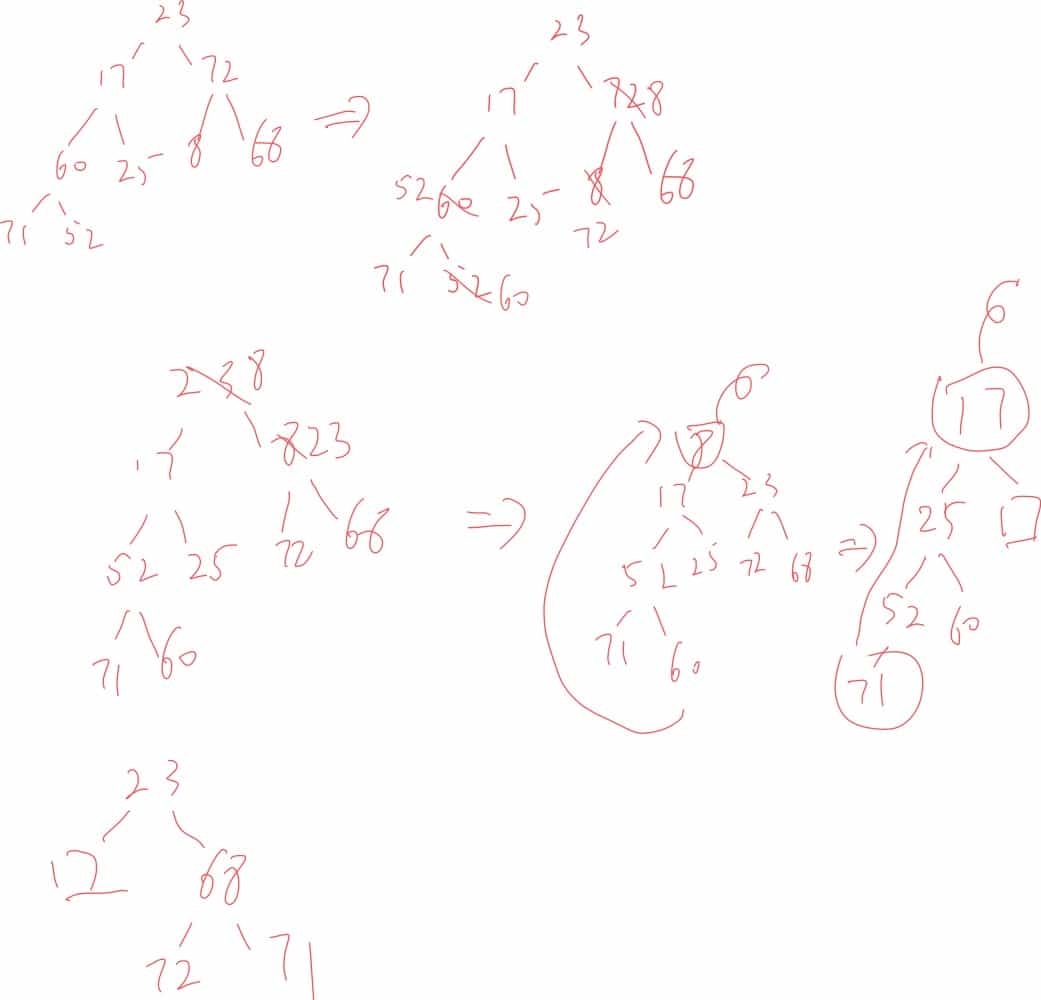 23
17 72
60 25 8 68
71 52
⇒
23
17 72 8
52 60 25 8 68
72
71 52 60
23 8
17 8 23
52 25 72 68
71 60
⇒
6
8
17 23
52 25 72 68
71 60
⇒
6
17
25
52 60
71
23
68
72 71